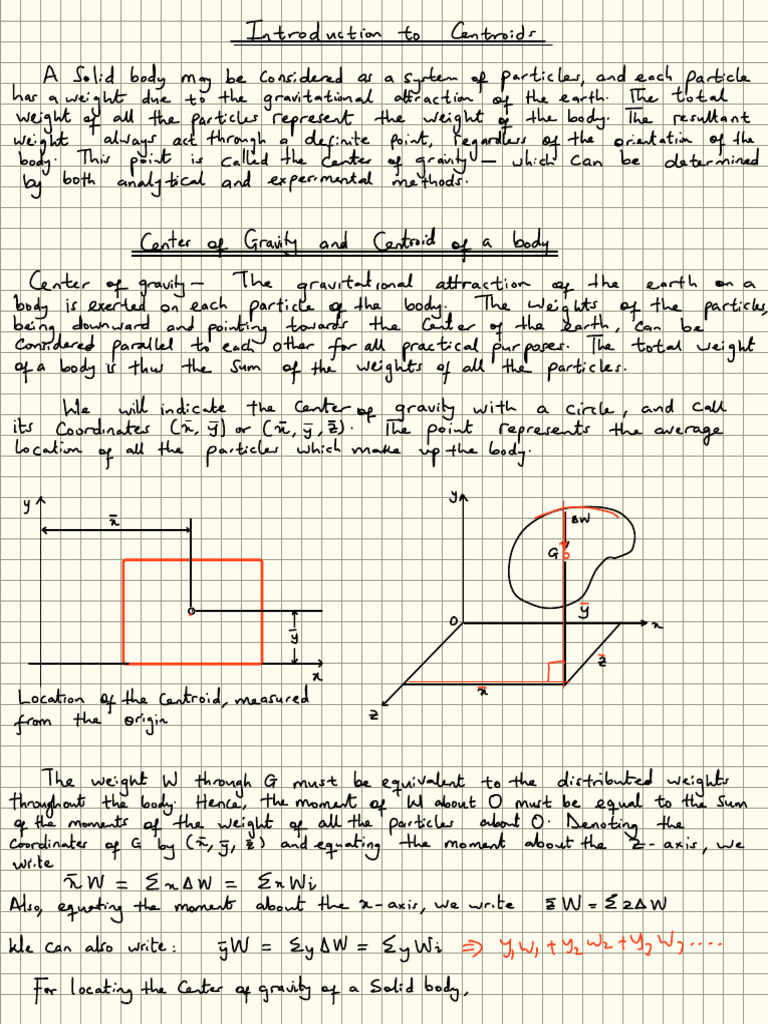 Introduction to Centroids
A Solid body may be considered as a system of particles, and each particle
has a weight due to the gravitational attraction of the earth. The total
weight of all the particles represent the weight of the body. The resultant
weight always act through a definite point, regardless of the orientation of the
body. This point is called the center of gravity – which can be determined
by both analytical and experimental methods.
Center of Gravity and Centroid of a body
Center of gravity – The gravitational attraction of the earth on a
body is exerted on each particle of the body. The weights of the particles,
being downward and pointing towards the center of the earth, can be
Considered parallel to each other for all practical purposes. The total weight
of a body is thus the sum of the weights of all the particles.
We will indicate the center of gravity with a circle, and call
its coordinates (x̄, ȳ) or (x̄, ȳ, z̄). The point represents the average
location of all the particles which make up the body.
y
x̄
ȳ
x
y
ΔW
G
ȳ
O
x
z̄
x̄
z
Location of the Centroid, measured
from the origin
The weight W through G must be equivalent to the distributed weights
throughout the body. Hence, the moment of W about O must be equal to the sum
of the moments of the weight of all the particles about O. Denoting the
coordinates of G by (x̄, ȳ, z̄) and equating the moment about the z-axis, we
write
x̄W = ΣxΔW = ΣxWi
Also, equating the moment about the x-axis, we write z̄W = ΣzΔW
We can also write: ȳW = ΣyΔW = ΣyWi ⇒ y₁W₁ + y₂W₂ + y₃W₃....
For locating the Center of gravity of a Solid body,